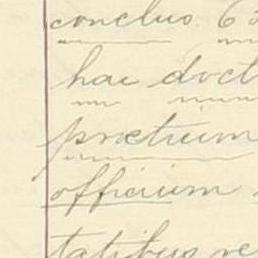 conclus. 63
hac doct
prœtium
officium
tatibus ve